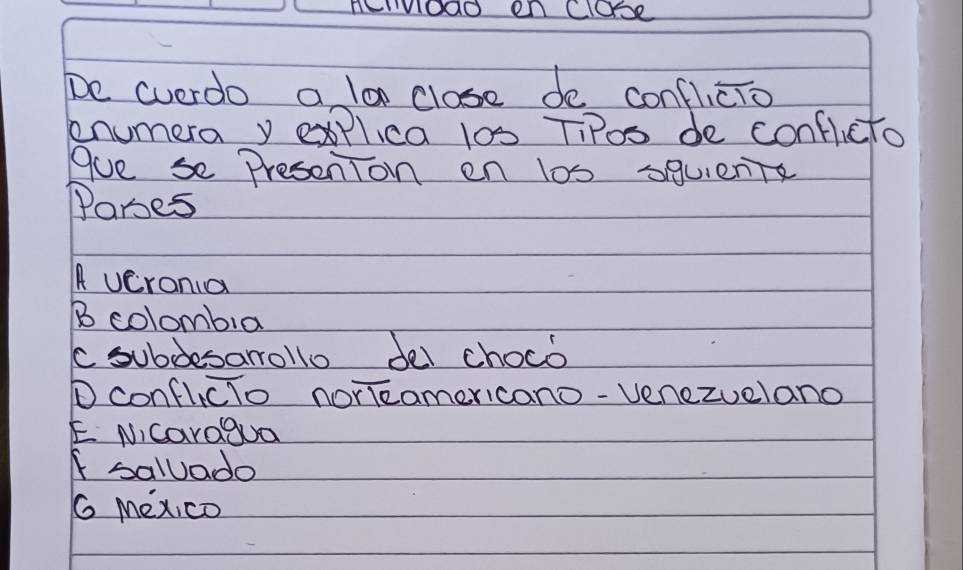 Actividad en clase
De cuerdo a la clase de conflicto
enumera y explica los Tipos de conflicto
que se Presentan en los siguiente
Paises
A Ucrania
B colombia
C subdesarrollo del chocó
D conflicto norteamericano - venezuelano
E Nicaragua
F salvado
G México